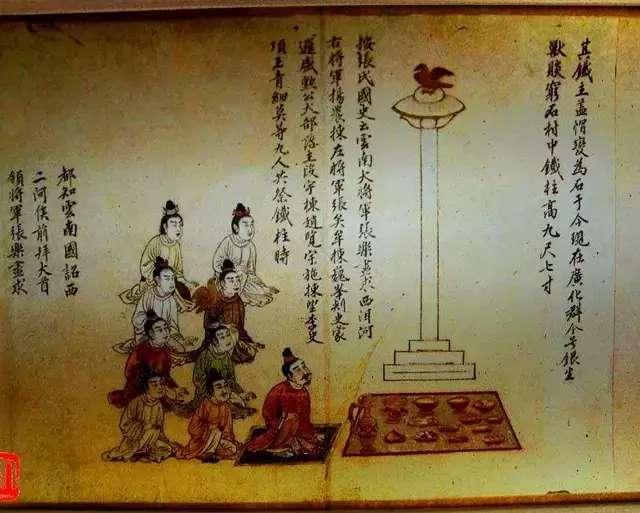 其鐵主蓋帽變為石于今現在廣化郡今号銀生
獸賧窮石村中鐵柱高九尺七寸
按張氏國史云雲南大將軍張樂盡求西洱河
右將軍揚農棟左將軍張矣牟棟巍峯刾史蒙
邏盛勲公大部落主段宇棟趙覽宇施棟望李史
頂王青細莫等九人共祭鐵柱時
都知雲南國詔西
二河侯前拜大首
領將軍張樂盡求